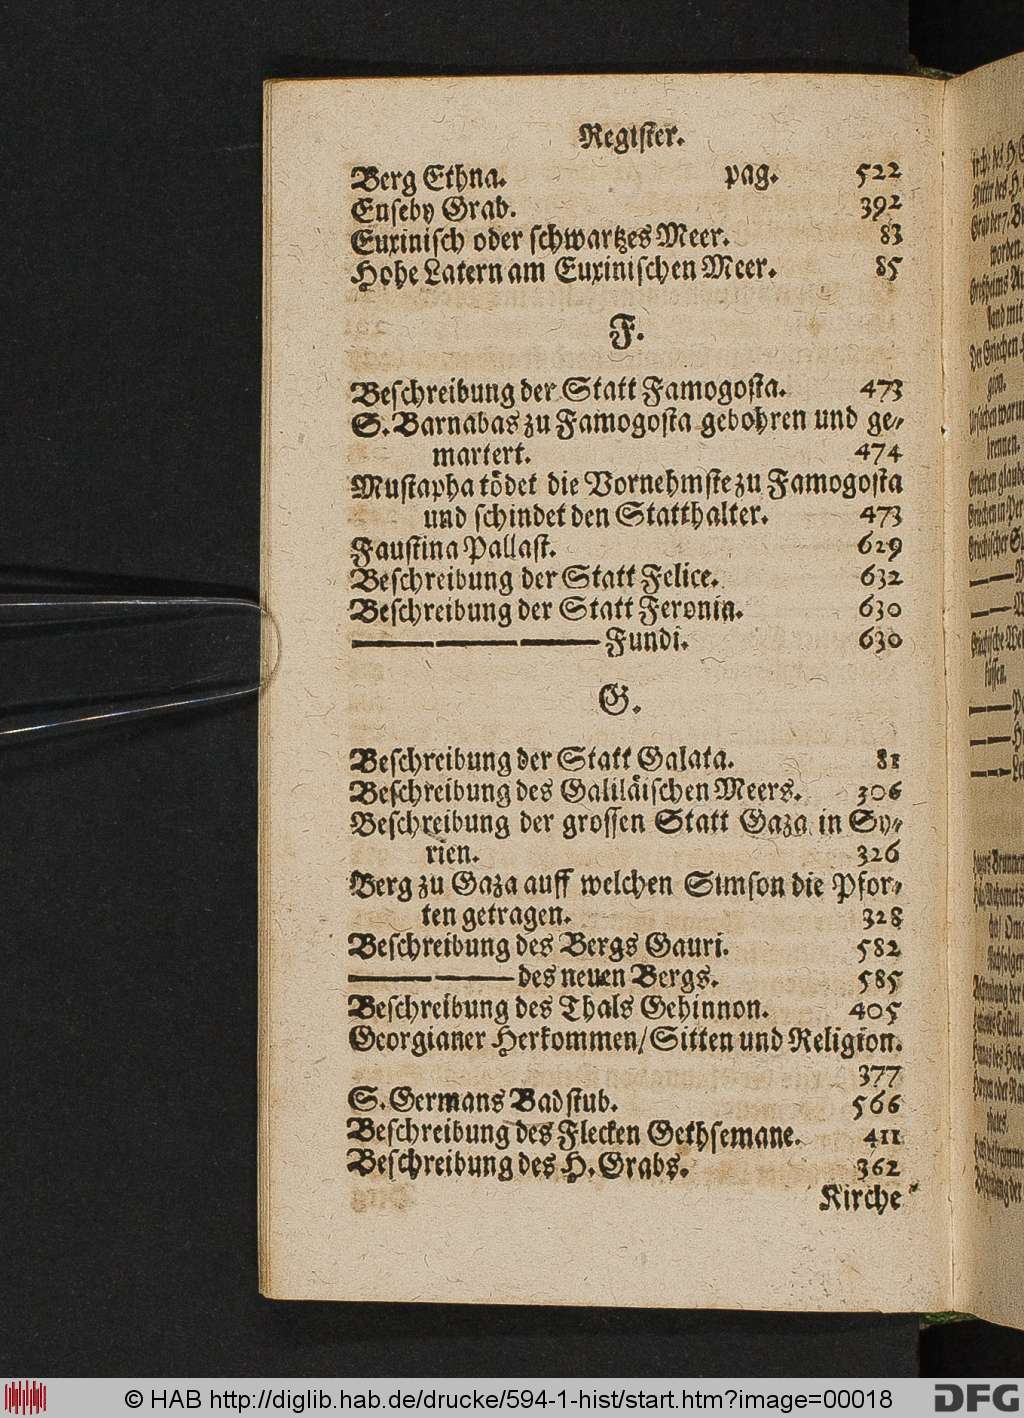 Register.
Berg Ethna. pag. 522
Euseby Grab. 392
Euxinisch oder schwartzes Meer. 83
Hohe Latern am Euxinischen Meer. 85
F.
Beschreibung der Statt Famogosta. 473
S. Barnabas zu Famogosta gebohren und ge-
martert. 474
Mustapha tödet die Vornehmste zu Famogosta
und schindet den Statthalter. 473
Faustina Pallast. 629
Beschreibung der Statt Felice. 632
Beschreibung der Statt Feronin. 630
— — — Fundi. 630
G.
Beschreibung der Statt Galata. 81
Beschreibung des Galiläischen Meers. 306
Beschreibung der grossen Statt Gaza in Sy-
rien. 326
Berg zu Gaza auff welchen Simson die Pfor-
ten getragen. 328
Beschreibung des Bergs Gauri. 582
— — des neuen Bergs. 585
Beschreibung des Thals Gehinnon. 405
Georgianer Herkommen/ Sitten und Religion.
377
S. Germans Badstub. 566
Beschreibung des Flecken Gethsemane. 411
Beschreibung des H. Grabs. 362
Kirche
© HAB http://diglib.hab.de/drucke/594-1-hist/start.htm?image=00018
DFG